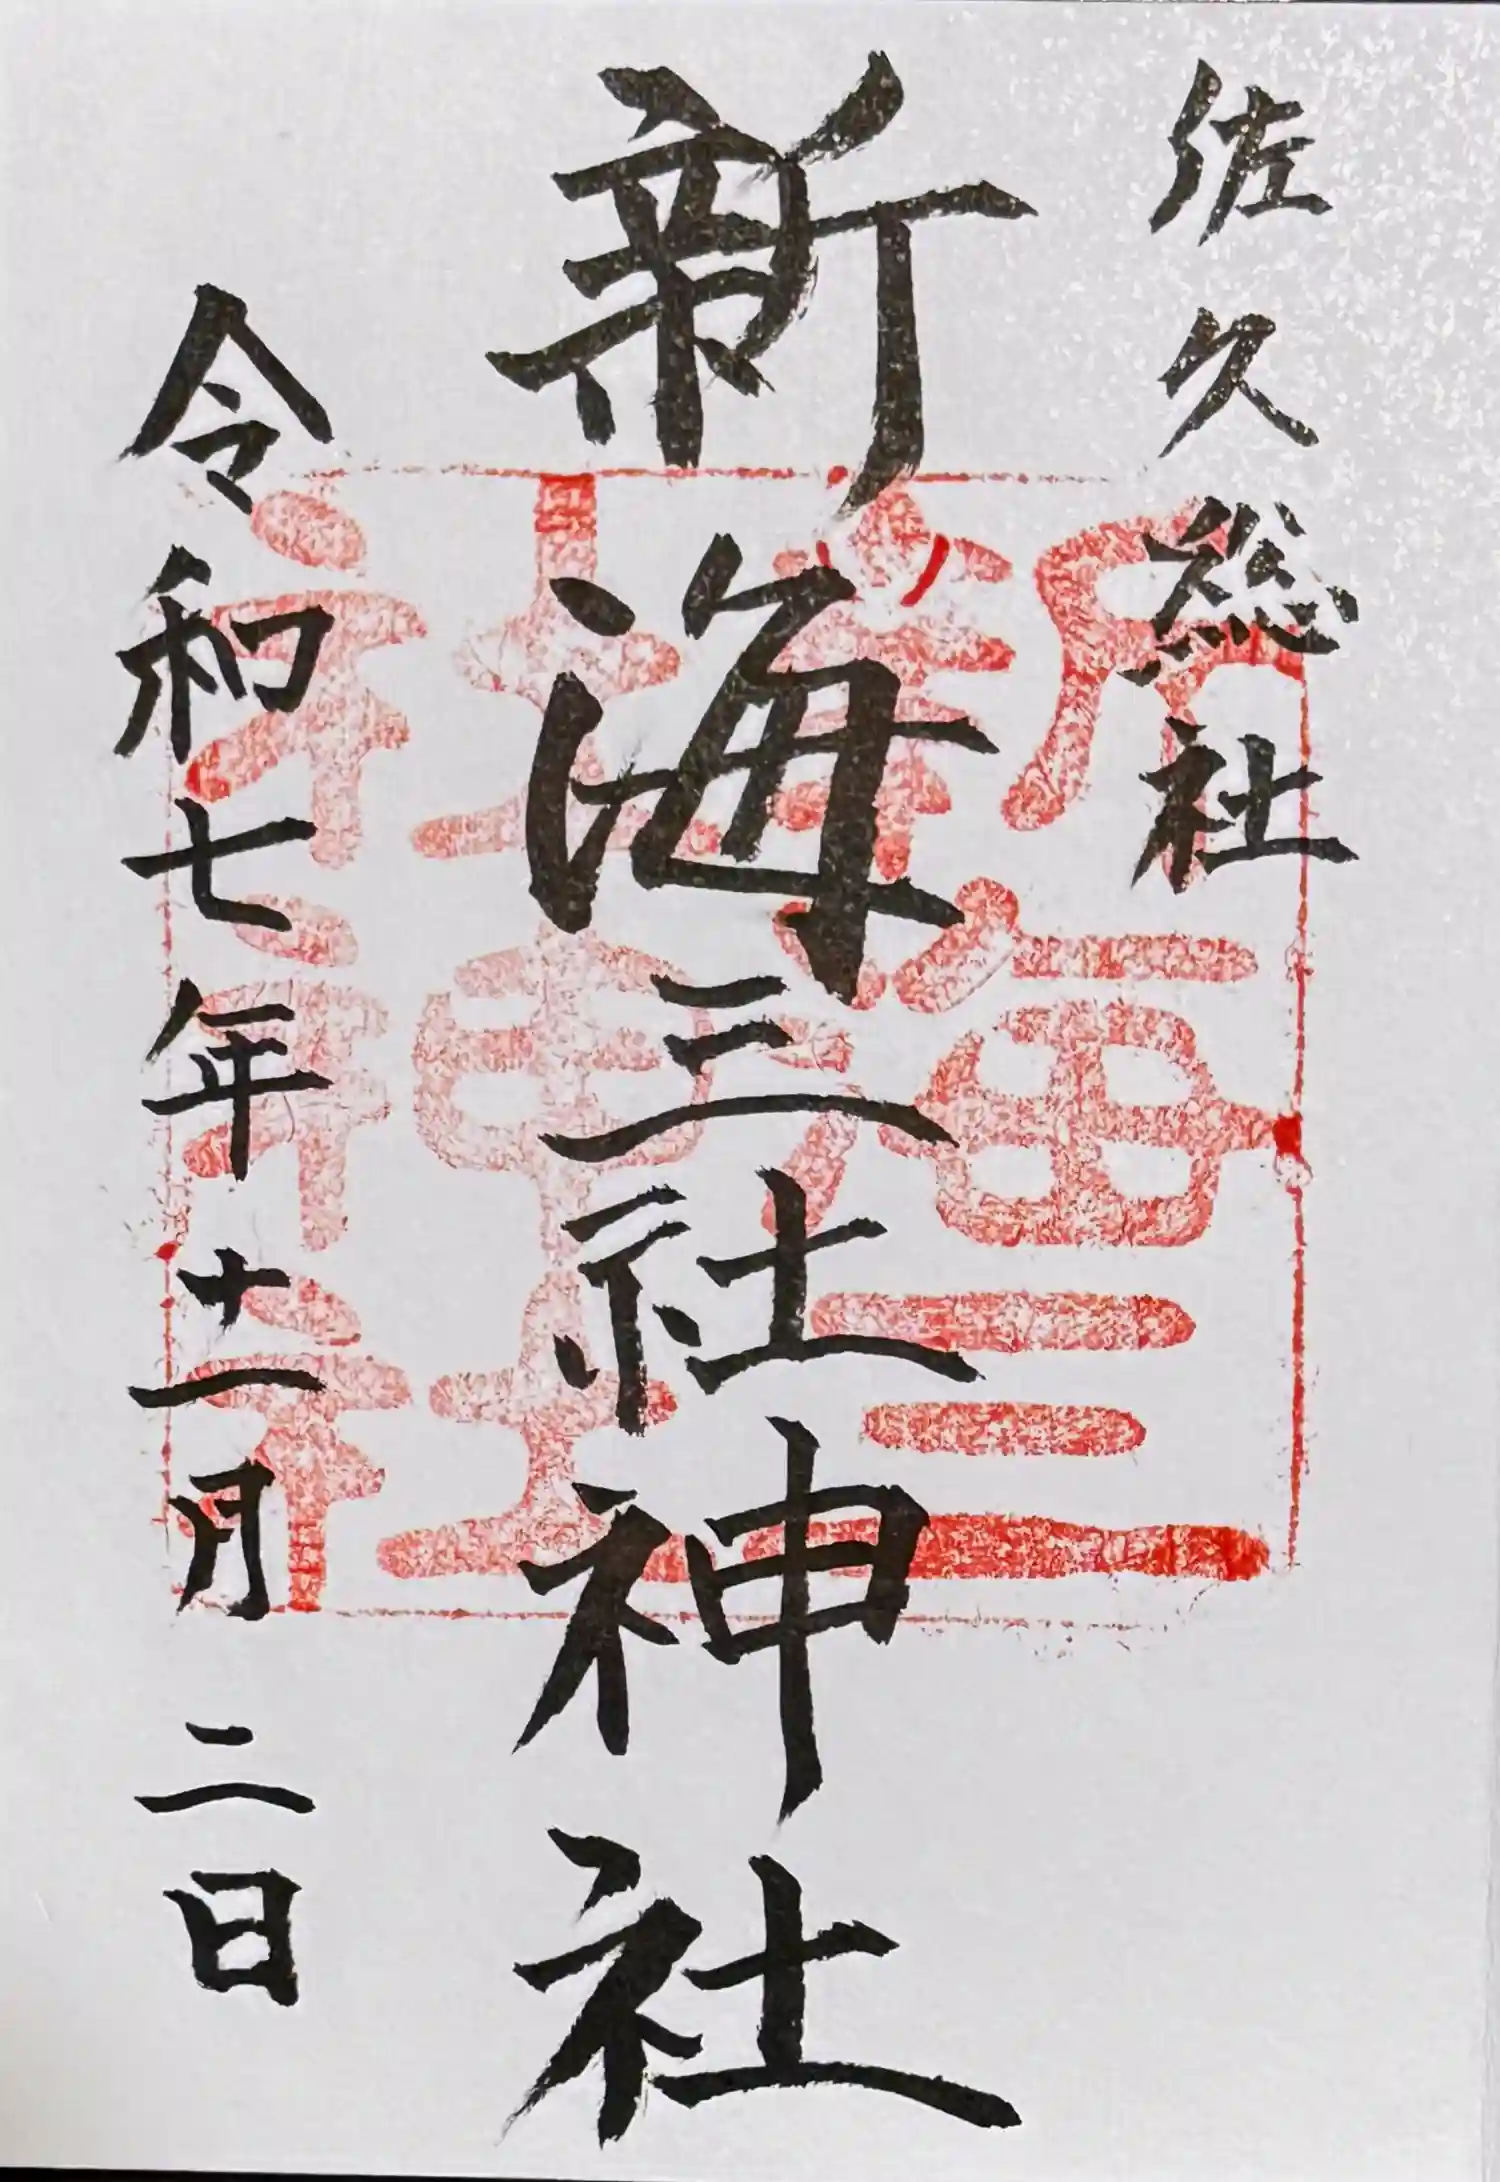 佐久総社
新海三社神社
令和七年十一月二日
新海三社神社